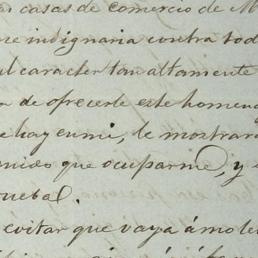 as casas de comercio de M
me indignaria contra tod
l caracter tan altamente
a de ofrecerle este homena
e hay en mi, le mostrara
nido que ocuparme, y
rueba.
evitar que vaya á mole